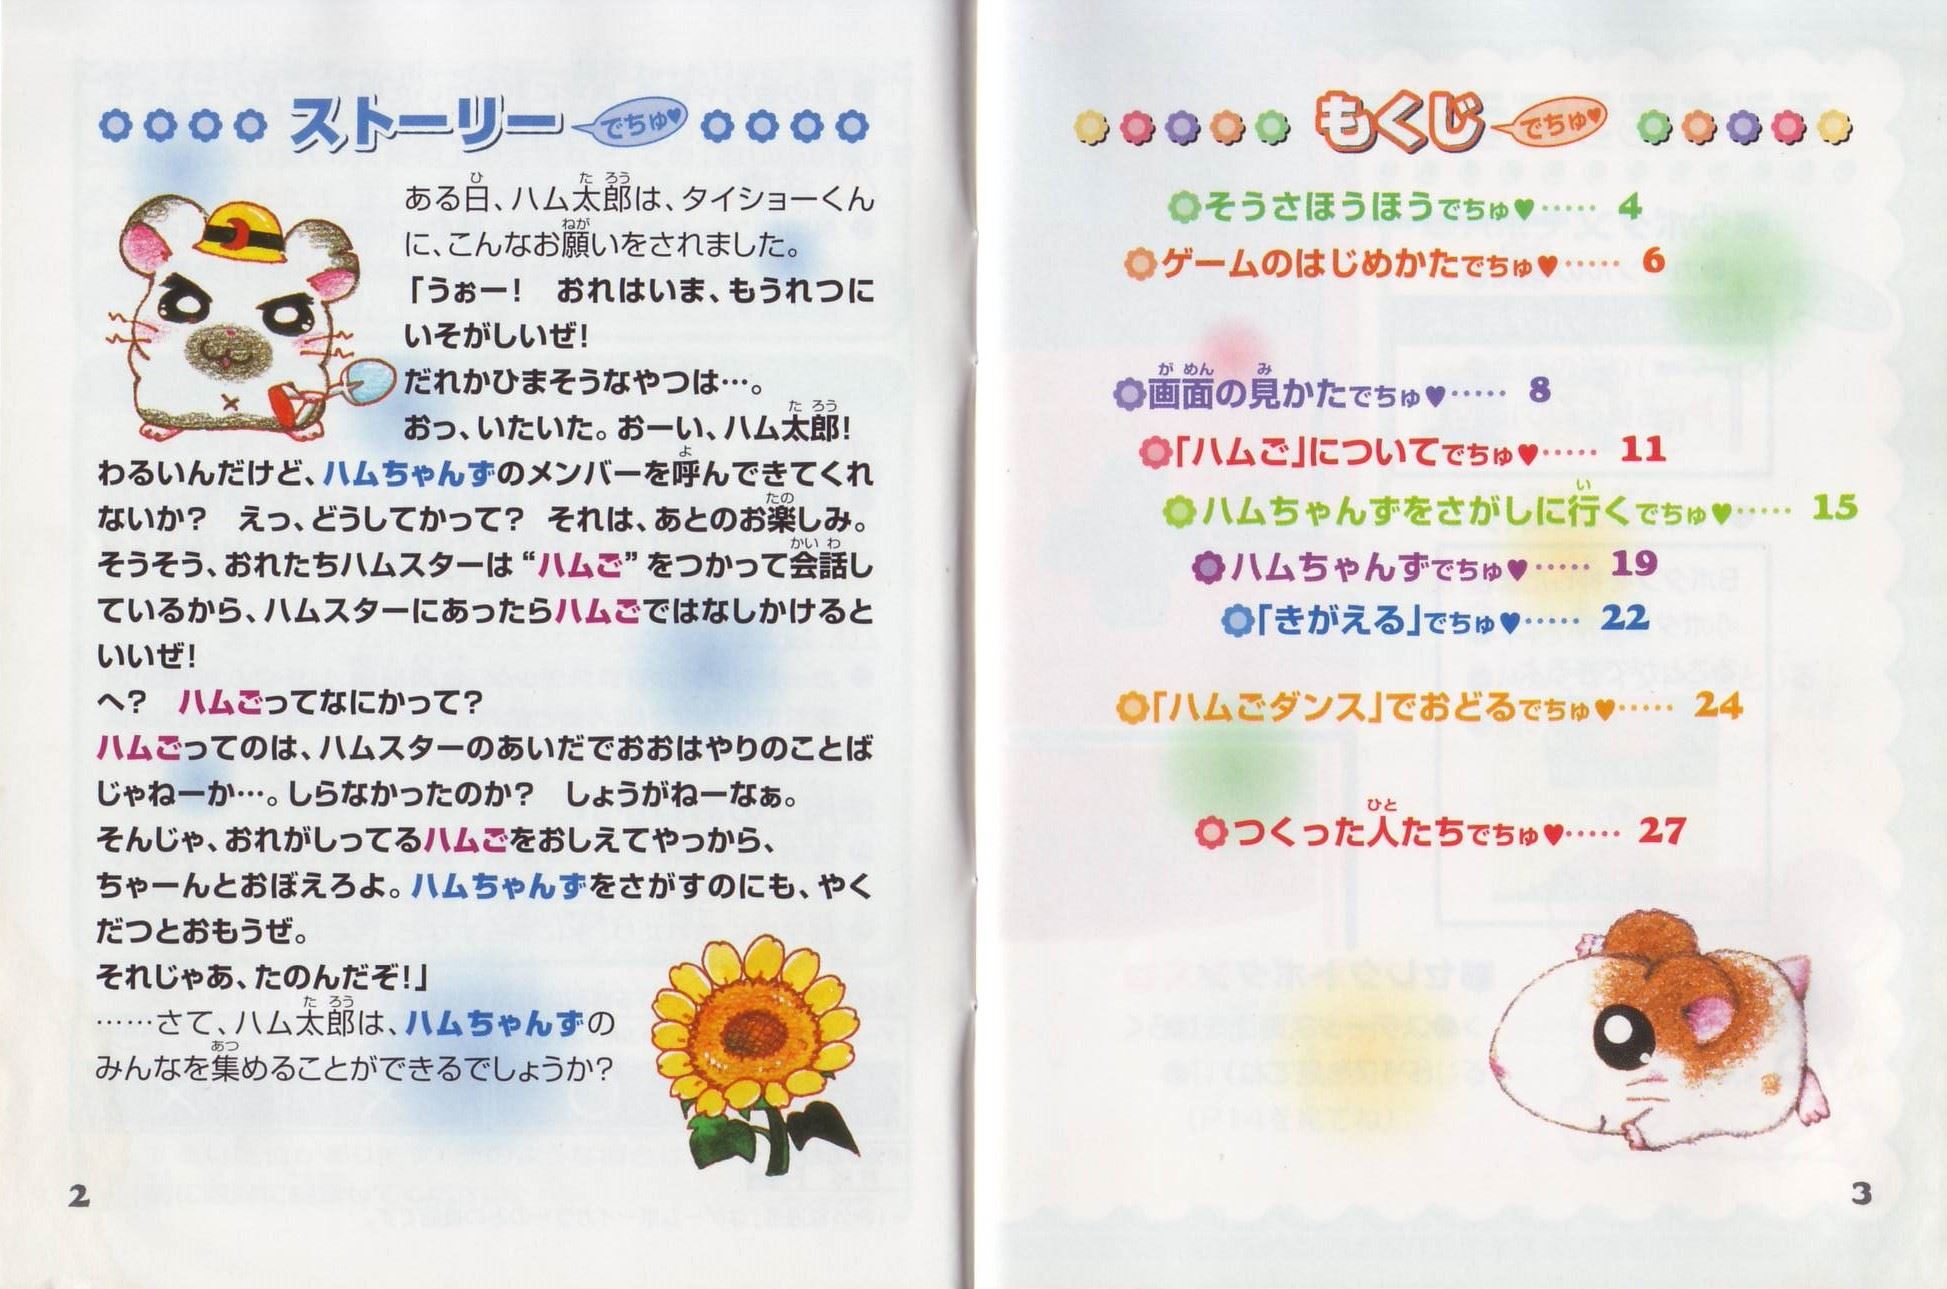 ストーリー でちゅ♥
ある日、ハム太郎は、タイショーくん
に、こんなお願いをされました。
「うぉー!　おれはいま、もうれつに
いそがしいぜ!
だれかひまそうなやつは…。
おっ、いたいた。おーい、ハム太郎!
わるいんだけど、ハムちゃんずのメンバーを呼んできてくれ
ないか?　えっ、どうしてかって?　それは、あとのお楽しみ。
そうそう、おれたちハムスターは“ハムご”をつかって会話し
ているから、ハムスターにあったらハムごではなしかけると
いいぜ!
へ?　ハムごってなにかって?
ハムごってのは、ハムスターのあいだでおおはやりのことば
じゃねーか…。しらなかったのか?　しょうがねーなぁ。
そんじゃ、おれがしってるハムごをおしえてやっから、
ちゃーんとおぼえろよ。ハムちゃんずをさがすのにも、やく
だつとおもうぜ。
それじゃあ、たのんだぞ!」
……さて、ハム太郎は、ハムちゃんずの
みんなを集めることができるでしょうか?
2
もくじ でちゅ♥
そうさほうほうでちゅ♥…… 4
ゲームのはじめかたでちゅ♥…… 6
画面の見かたでちゅ♥…… 8
「ハムご」についてでちゅ♥…… 11
ハムちゃんずをさがしに行くでちゅ♥…… 15
ハムちゃんずでちゅ♥…… 19
「きがえる」でちゅ♥…… 22
「ハムごダンス」でおどるでちゅ♥…… 24
つくった人たちでちゅ♥…… 27
3